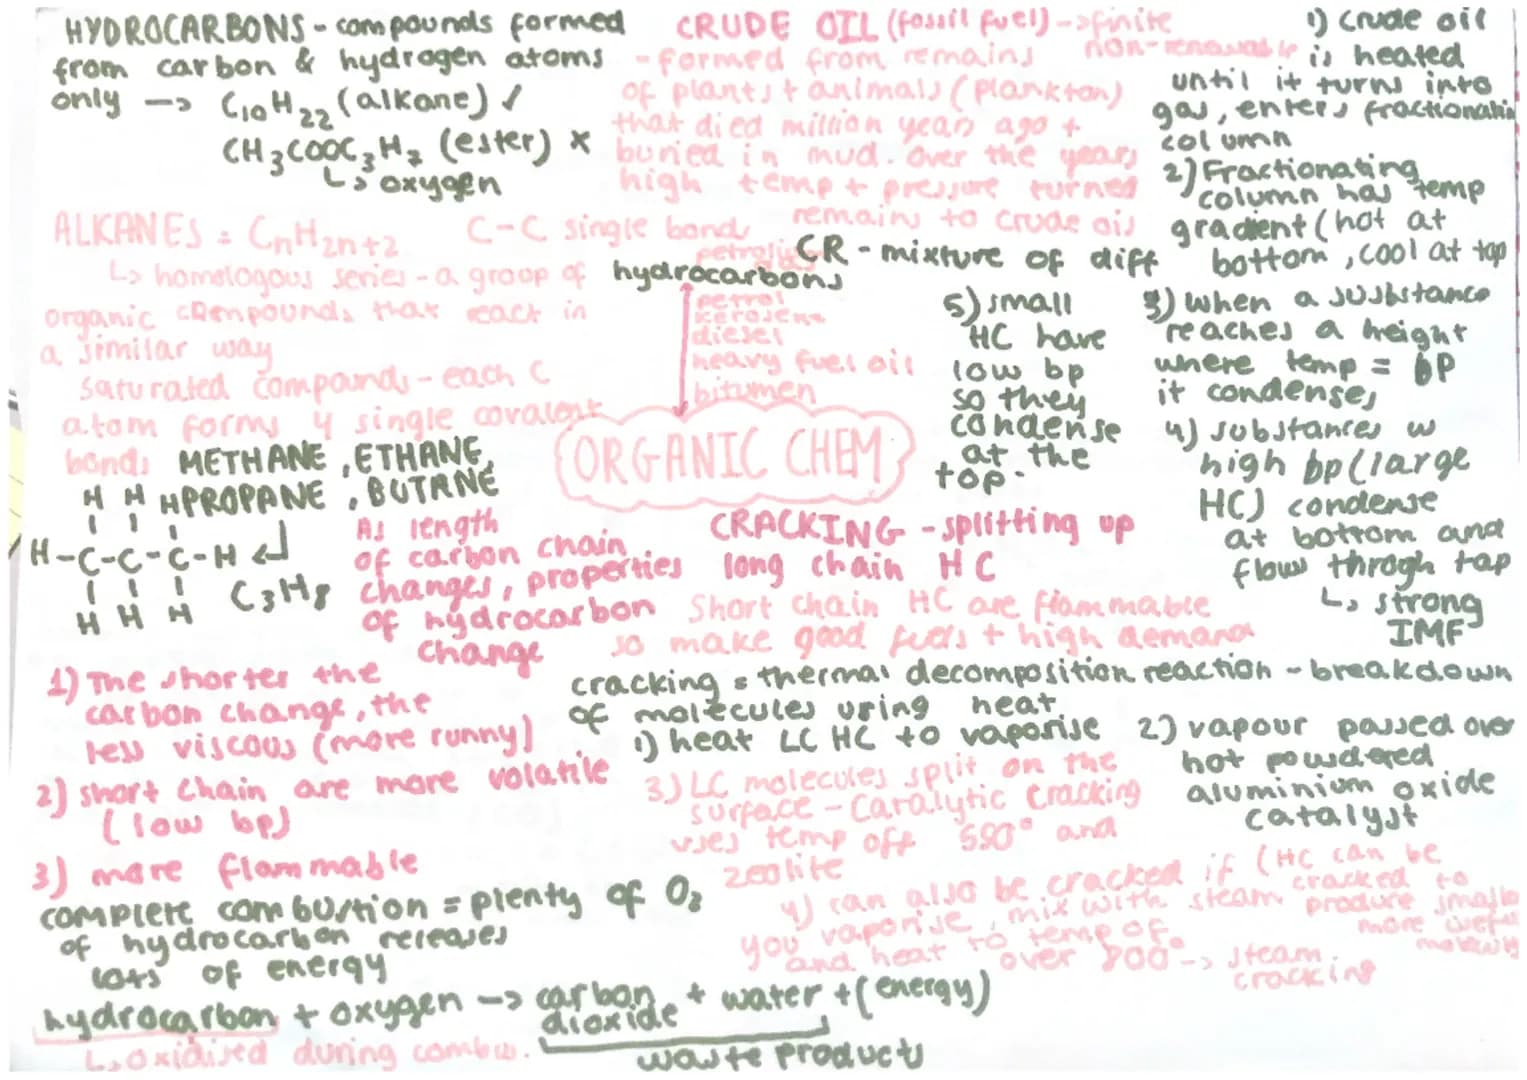 HYDROCARBONS - compounds formed
from carbon & hydrogen atoms
only -> C10H22 (alkane) ✓
CH3COOC3H7 (ester) ×
↳ oxygen
ALKANES = CnH2n+2 C-C single bonds
↳ homologous series - a group of
organic compounds that react in
a similar way
saturated compounds - each C
atom forms 4 single covalent
bonds METHANE, ETHANE,
PROPANE, BUTANE
H H H
H-C-C-C-H
H H H
C3H8
As length
of carbon chain
changes, properties
of hydrocarbon
change
1) The shorter the
carbon change, the
less viscous (more runny)
2) short chain are more volatile
(low bp)
3) more flammable
complete combustion = plenty of O2
of hydrocarbon releases
lots of energy
hydrocarbon + oxygen -> carbon dioxide + water + (energy)
↳ oxidised during combus.
waste products
CRUDE OIL (fossil fuel) -> finite
non-renewable
- formed from remains
of plants + animals (plankton)
that died million years ago +
buried in mud. Over the years
high temp + pressure turned
remains to crude oil
CR - mixture of diff
hydrocarbons
petrol
kerosene
diesel
heavy fuel oil
bitumen
ORGANIC CHEM
1) crude oil
is heated
until it turns into
gas, enters fractionatin
column
2) Fractionating
column has temp
gradient (hot at
bottom, cool at top
3) when a susbstance
reaches a height
where temp = bp
it condenses
4) substances w
high bp (large
HC) condense
at bottom and
flow throgh tap
↳ strong
IMF
5) small
HC have
low bp
so they
condense
at the
top.
CRACKING - splitting up
long chain HC
Short chain HC are flammable
so make good fuels + high demand
cracking = thermal decomposition reaction - breakdown
of molecules using heat
1) heat LC HC to vaporise
2) vapour passed over
hot powdered
aluminium oxide
catalyst
3) LC molecules split on the
surface - catalytic cracking
uses temp off 550° and
zeolite
4) can also be cracked if
you vaporise, mix with steam
and heat to temp of
over 800° -> steam
cracking
(HC can be
cracked to
produce smalle
more usefu